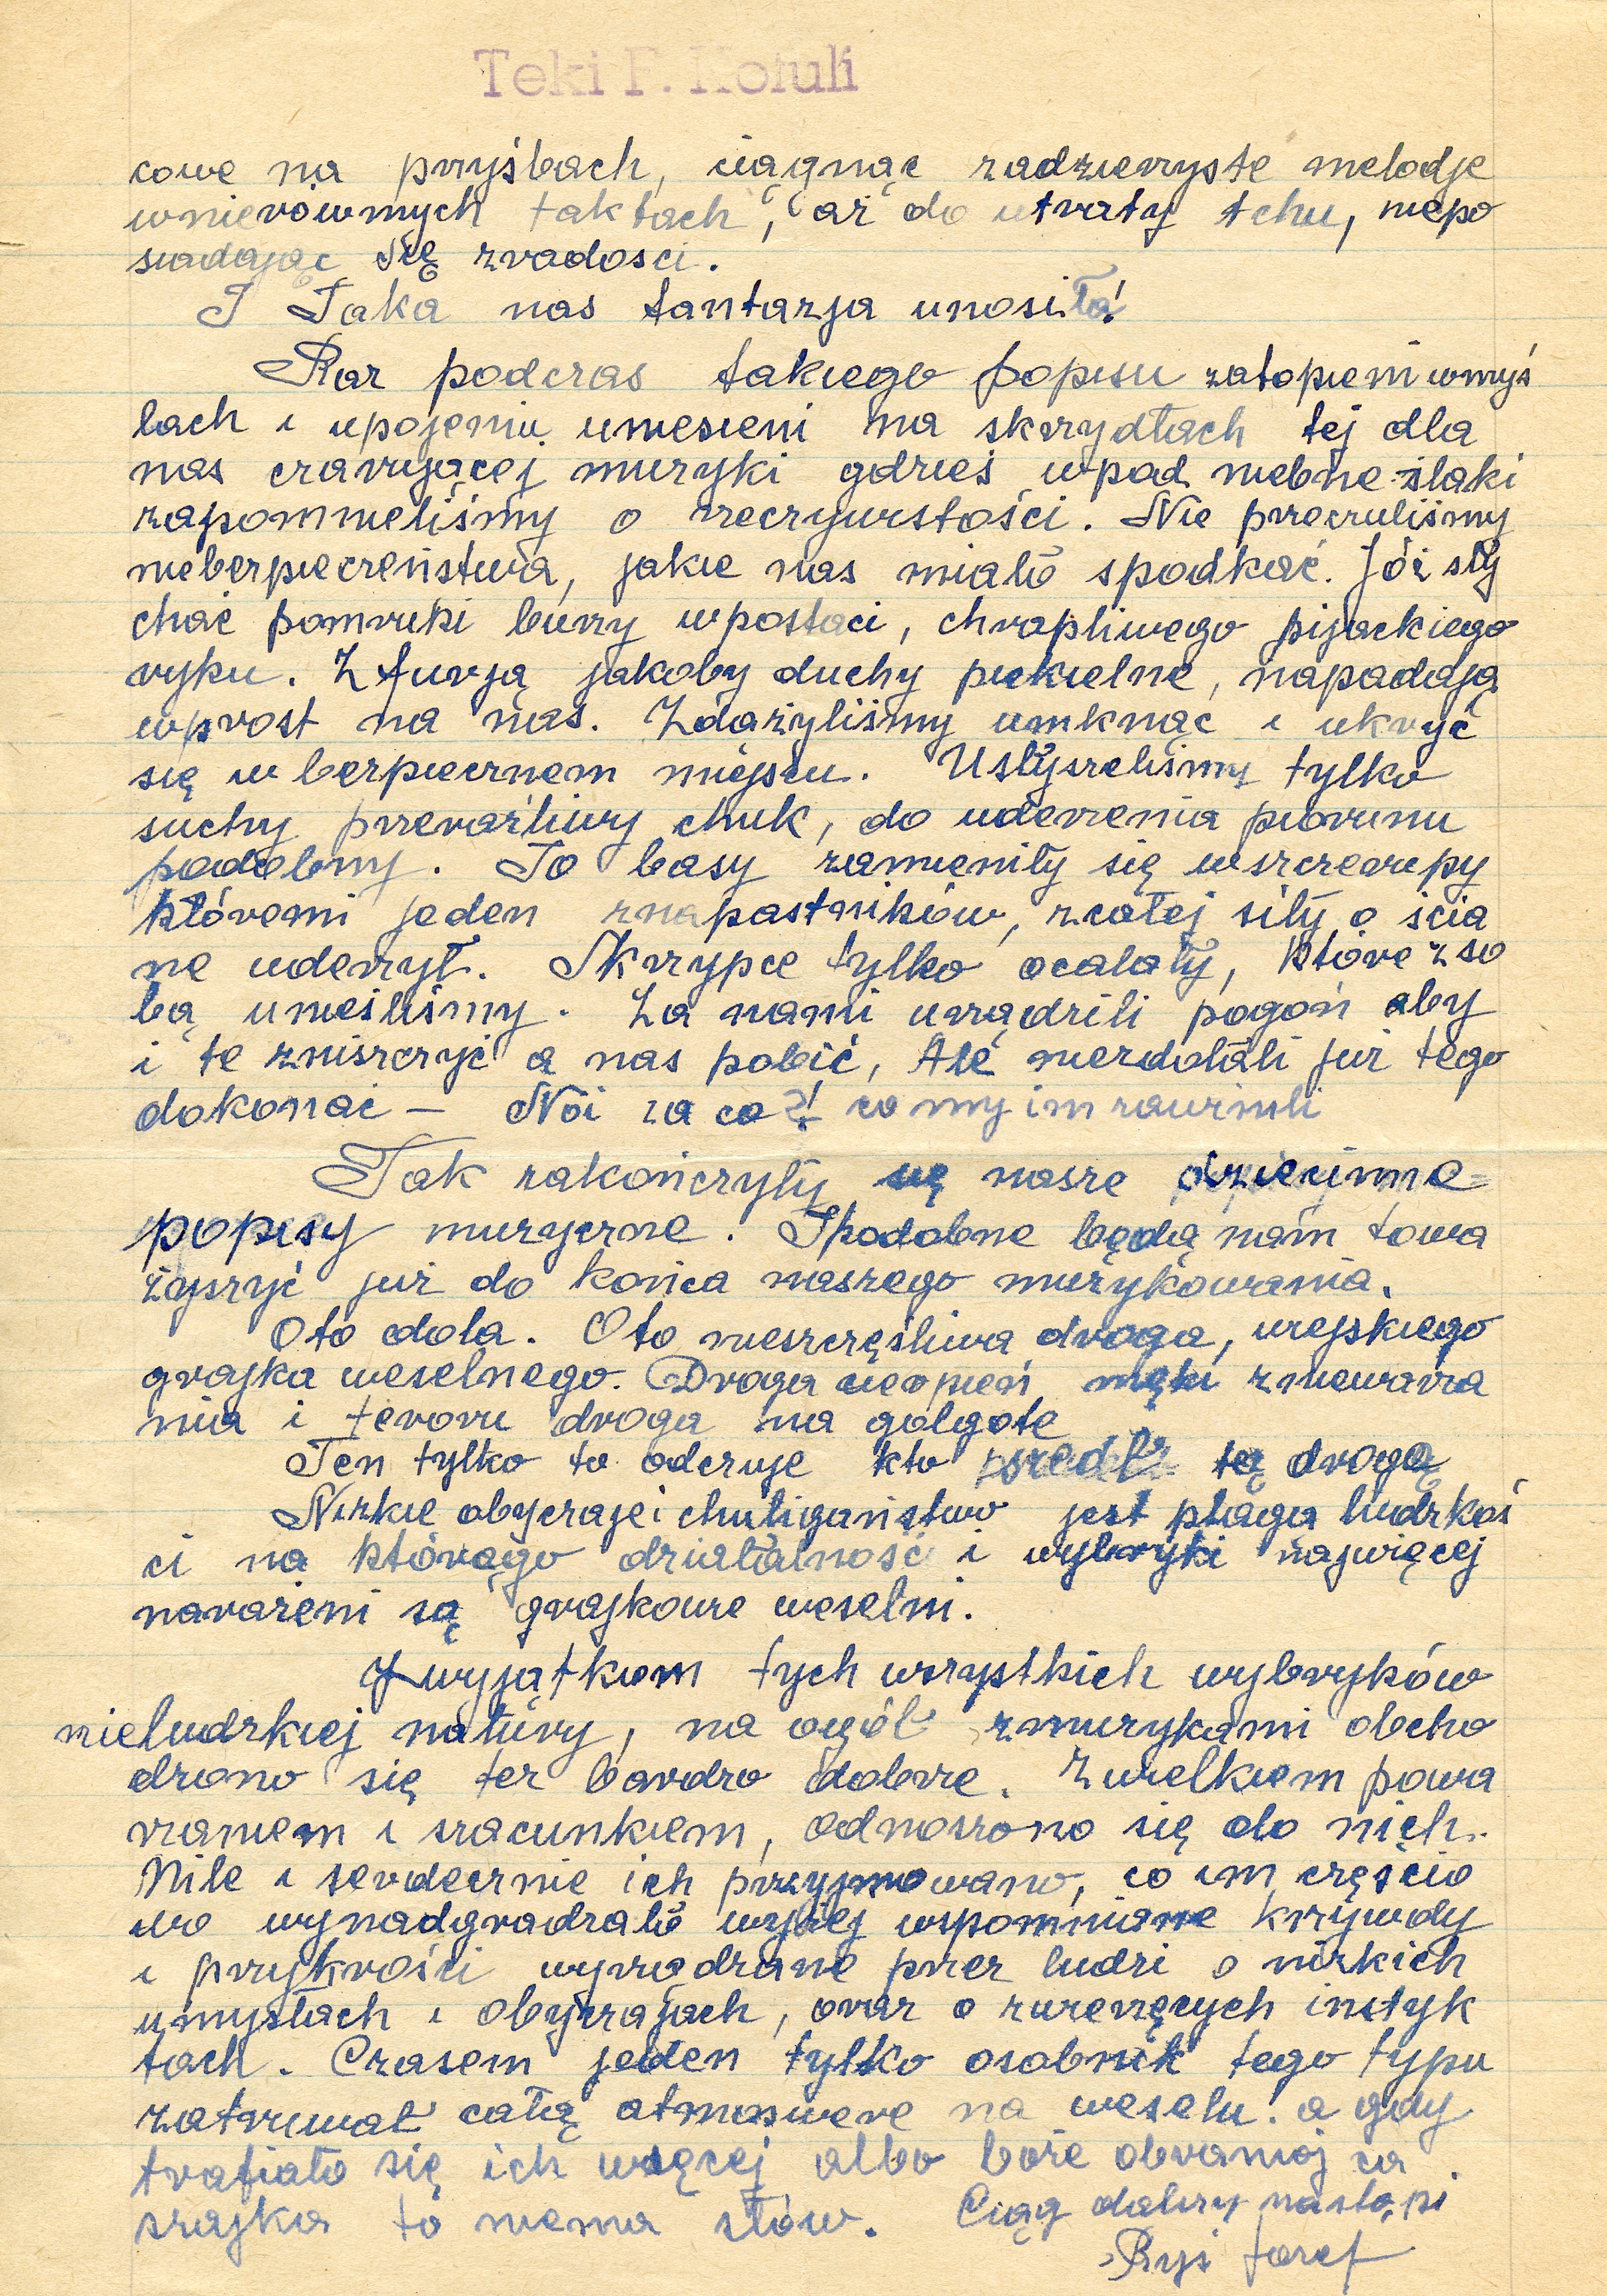 Teki F. Kotuli
cowe na pryźbach, ciągnąc zadzierzyste melodje
wnierównych taktach, aż do utraty tchu, niepo
siadając się zradości.
I Taka nas fantazja unosiła!
Raz podczas takiego popisu zatopieni wmyś
lach i upojeniu uniesieni na skrzydłach tej dla
nas czarującej muzyki gdzieś wpod niebne szlaki
zapomnieliśmy o rzeczywistości. Nie przeczuliśmy
niebezpieczeństwa, jakie nas miało spodkać. Jóż sły
chać pomruki burzy wpostaci, chrapliwego pijackiego
ryku. Z furją jakoby duchy piekielne, napadają
wprost na nas. Zdążyliśmy umknąć i ukryć
się w bezpiecznem miejscu. Usłyszeliśmy tylko
suchy przeraźliwy chuk, do uderzenia piorunu
podobny. To basy zamieniły się wszczerupy
któremi jeden znapastników, zcałej siły o ścia
ne uderzył. Skrzypce tylko ocalały, które zso
bą unieśliśmy. Za nami urządzili pogoń aby
i te zniszczyć a nas pobić, Ale niezdołali już tego
dokonać – Nói za co?! co my im zawinili
Tak zakończyły się nasze dziecinne
popisy muzyczne. I podobne będą nam towa
żyszyć już do końca naszego muzykowania.
Oto dola. Oto nieszczęśliwa droga, wiejskiego
grajka weselnego. Droga cierpień męki zniewaźa
nia i teroru droga na golgote
Ten tylko to odczuje kto szedł tą drogą
Nizkie obyczaje i chuligaństwo jest plaga ludzkoś
ci na którego działalność i wybryki najwięcej
narażeni są grajkowie weselni.
Zwyjątkiem tych wszystkich wybryków
nieludzkiej natury, na ogół zmuzykami obcho
dzono się też bardzo dobrze. Zwielkiem powa
żaniem i szacunkiem, odnoszono się do nich.
Mile i serdecznie ich przyjmowano, co im częścio
wo wynadgradzało wyżej wspomniane krzywdy
i przykrości wyrządzane przez ludzi o nizkich
umysłach i obyczajach, oraz o zwierzęcych instyk
tach. Czasem jeden tylko osobnik tego typu
zatruwał całą atmoswere na weselu. a gdy
trafiało się ich więcej albo boże obroniaj ca
szajka to niema słów. Ciąg dalszy nastąpi
Ryś Józef